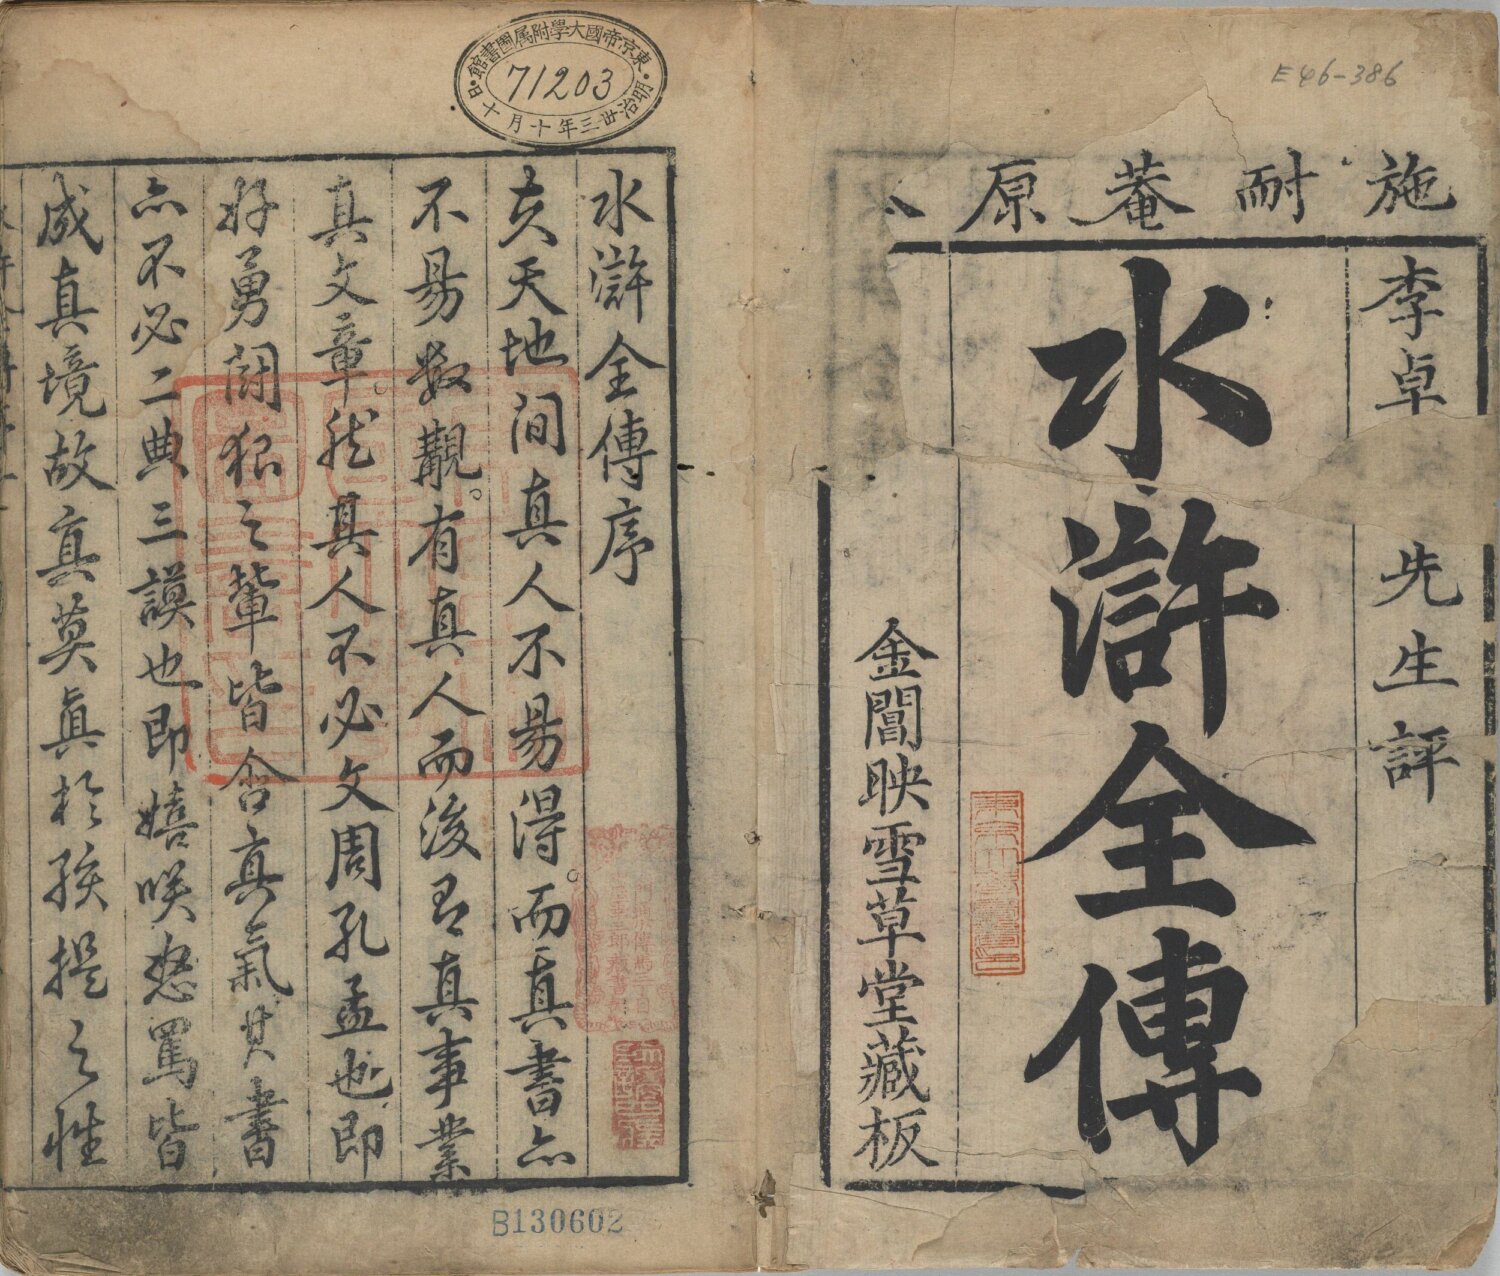 E46-386
施耐菴原
李卓
先生評
水滸全傳
金閶映雪草堂藏板
東京帝國大學附属圖書館
71203
明治丗三年十月十日
水滸全傳序
亥天地间真人不易得。而真書亦
不易数觀。有真人而後有真事業
真文章。然其人不必文周孔孟也即
好勇闘狠之輩皆含真氣其書
亦不必二典三謨也即嬉咲怒罵皆
成真境故真莫真於孩提之性
B130602